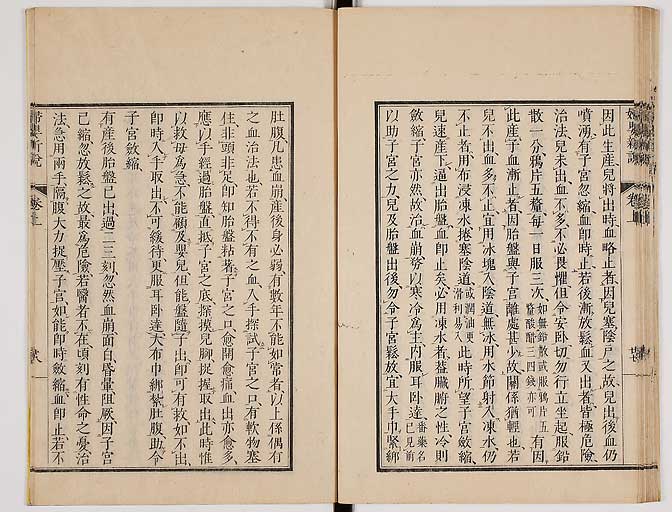 因此生產兒將出時血略止者因兒塞陰戶之故兒出後血仍
噴湧有子宮忽縮血即時止若後漸放鬆血又出者皆極危險
治法兒未出血不多不必畏懼但令安卧切勿行立坐起服鉛
散一分鴉片五釐每一日服三次如無鉛散或服鴉片五釐酸醋三四錢亦可有因
此産子血漸止者因胎盤與子宮離處甚少故關係猶輕也若
兒不出血多不止宜用冰塊入陰道無冰用水節射入凍水仍
不止者用布浸凍水捲塞陰道或潤油更滑利易入此時所望子宮斂縮
兒速產下逼出胎盤血即止矣必用凍水者蓋臟腑之性冷則
斂縮子宮亦然故治血崩務以寒冷為主内服耳卧達番藥名已見前
以助子宮之力兒及胎盤出後勿令子宮鬆放宜大手巾緊綁
肚腹凡患血崩産後身必弱有數年不能如常者以上係偶有
之血治法也若不得不有之血入手探試子宮之口有軟物塞
住非頭非足即知胎盤粘著子宮之口愈開愈痛血出亦愈多
應以手經過胎盤直抵子宮之底探摸兒腳捉握取出此時惟
以救母為急不能顧及嬰兒但能盤隨子出即可有救如不出
即時入手取出不可緩待更服耳卧達大布巾綁紮肚腹助令
子宮斂縮
有產後胎盤已出過二三刻忽然血崩面白昏暈阻厥因子宮
已縮忽放鬆之故最為危險若醫者不在頃刻有性命之憂治
法急用兩手隔腹大力捉壓子宮如能即時斂縮血即止若不